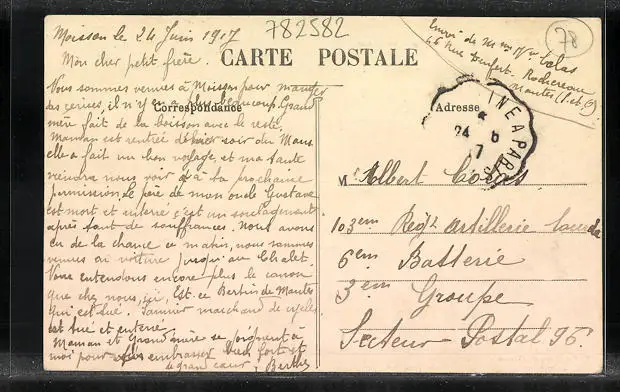 782582
78
Moisson le 24 Juin 1917
CARTE POSTALE
Mon cher petit frère.
Envoi de Mme
46 Rue Denfert-Rochereau
Mantes (S. et O.)
Correspondance
Adresse
Nous sommes venues à Moisson pour manger
des cerises, il n'y en a pas beaucoup. Grand
mère fait de la boisson avec le reste.
Maman est rentrée hier soir du Mans
elle a fait un bon voyage, et ma tante
viendra nous voir à ta prochaine
permission. Le père de mon oncle Gustave
est mort et enterré c'est un soulagement
après tant de souffrances. Nous avons
eu de la chance ce matin, nous sommes
venues en voiture jusqu'au Chalet.
Nous entendons encore plus le canon
que chez nous, ici. Est-ce Bertin de Mantes
qui est tué. marchand de
est tué et enterré.
Maman et Grand mère se joignent à
moi pour embrasser bien fort et
de grand cœur, Berthe
24 6
17
A PAR
Mr Albert
103em Regt artillerie lourde
6em Batterie
3em Groupe
Secteur Postal 96.